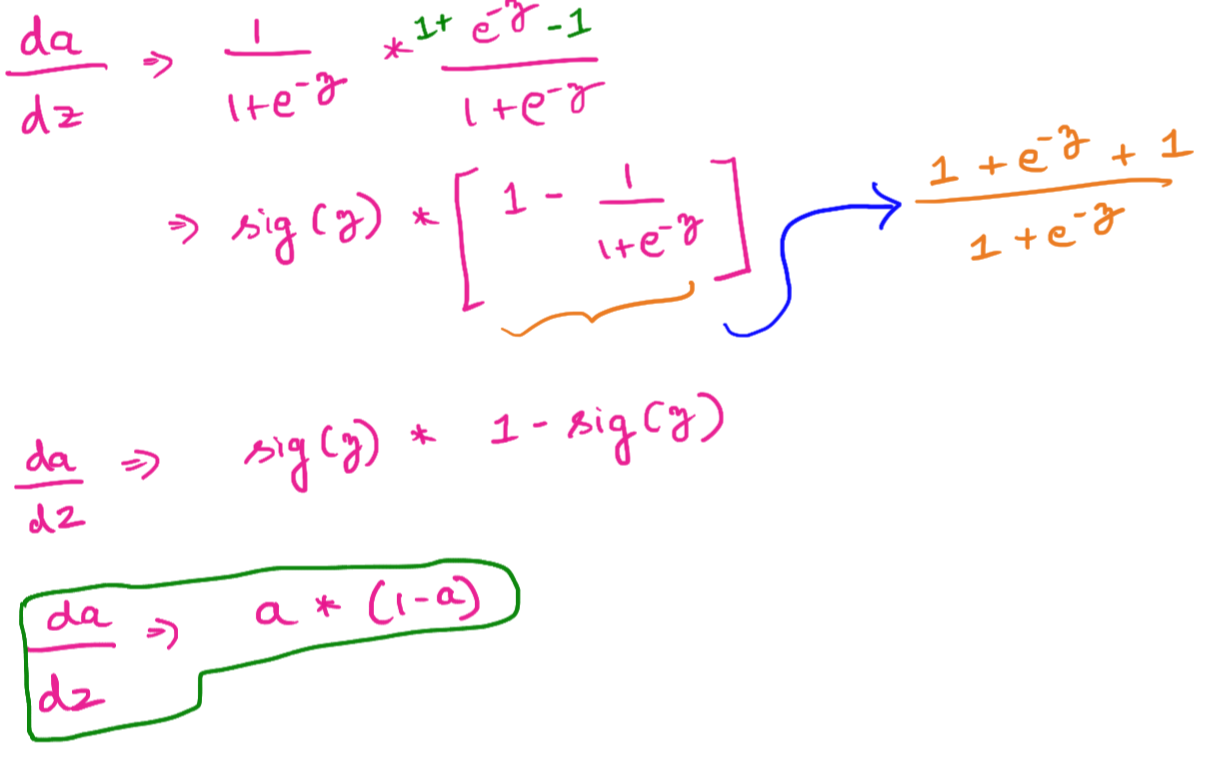 da/dz ⇒ 1/(1+e^-z) * (1+ e^-z -1)/(1+e^-z)
⇒ sig(z) * [ 1 - 1/(1+e^-z) ] (1 + e^-z + 1)/(1 + e^-z)
da/dz ⇒ sig(z) * 1 - sig(z)
da/dz ⇒ a * (1-a)